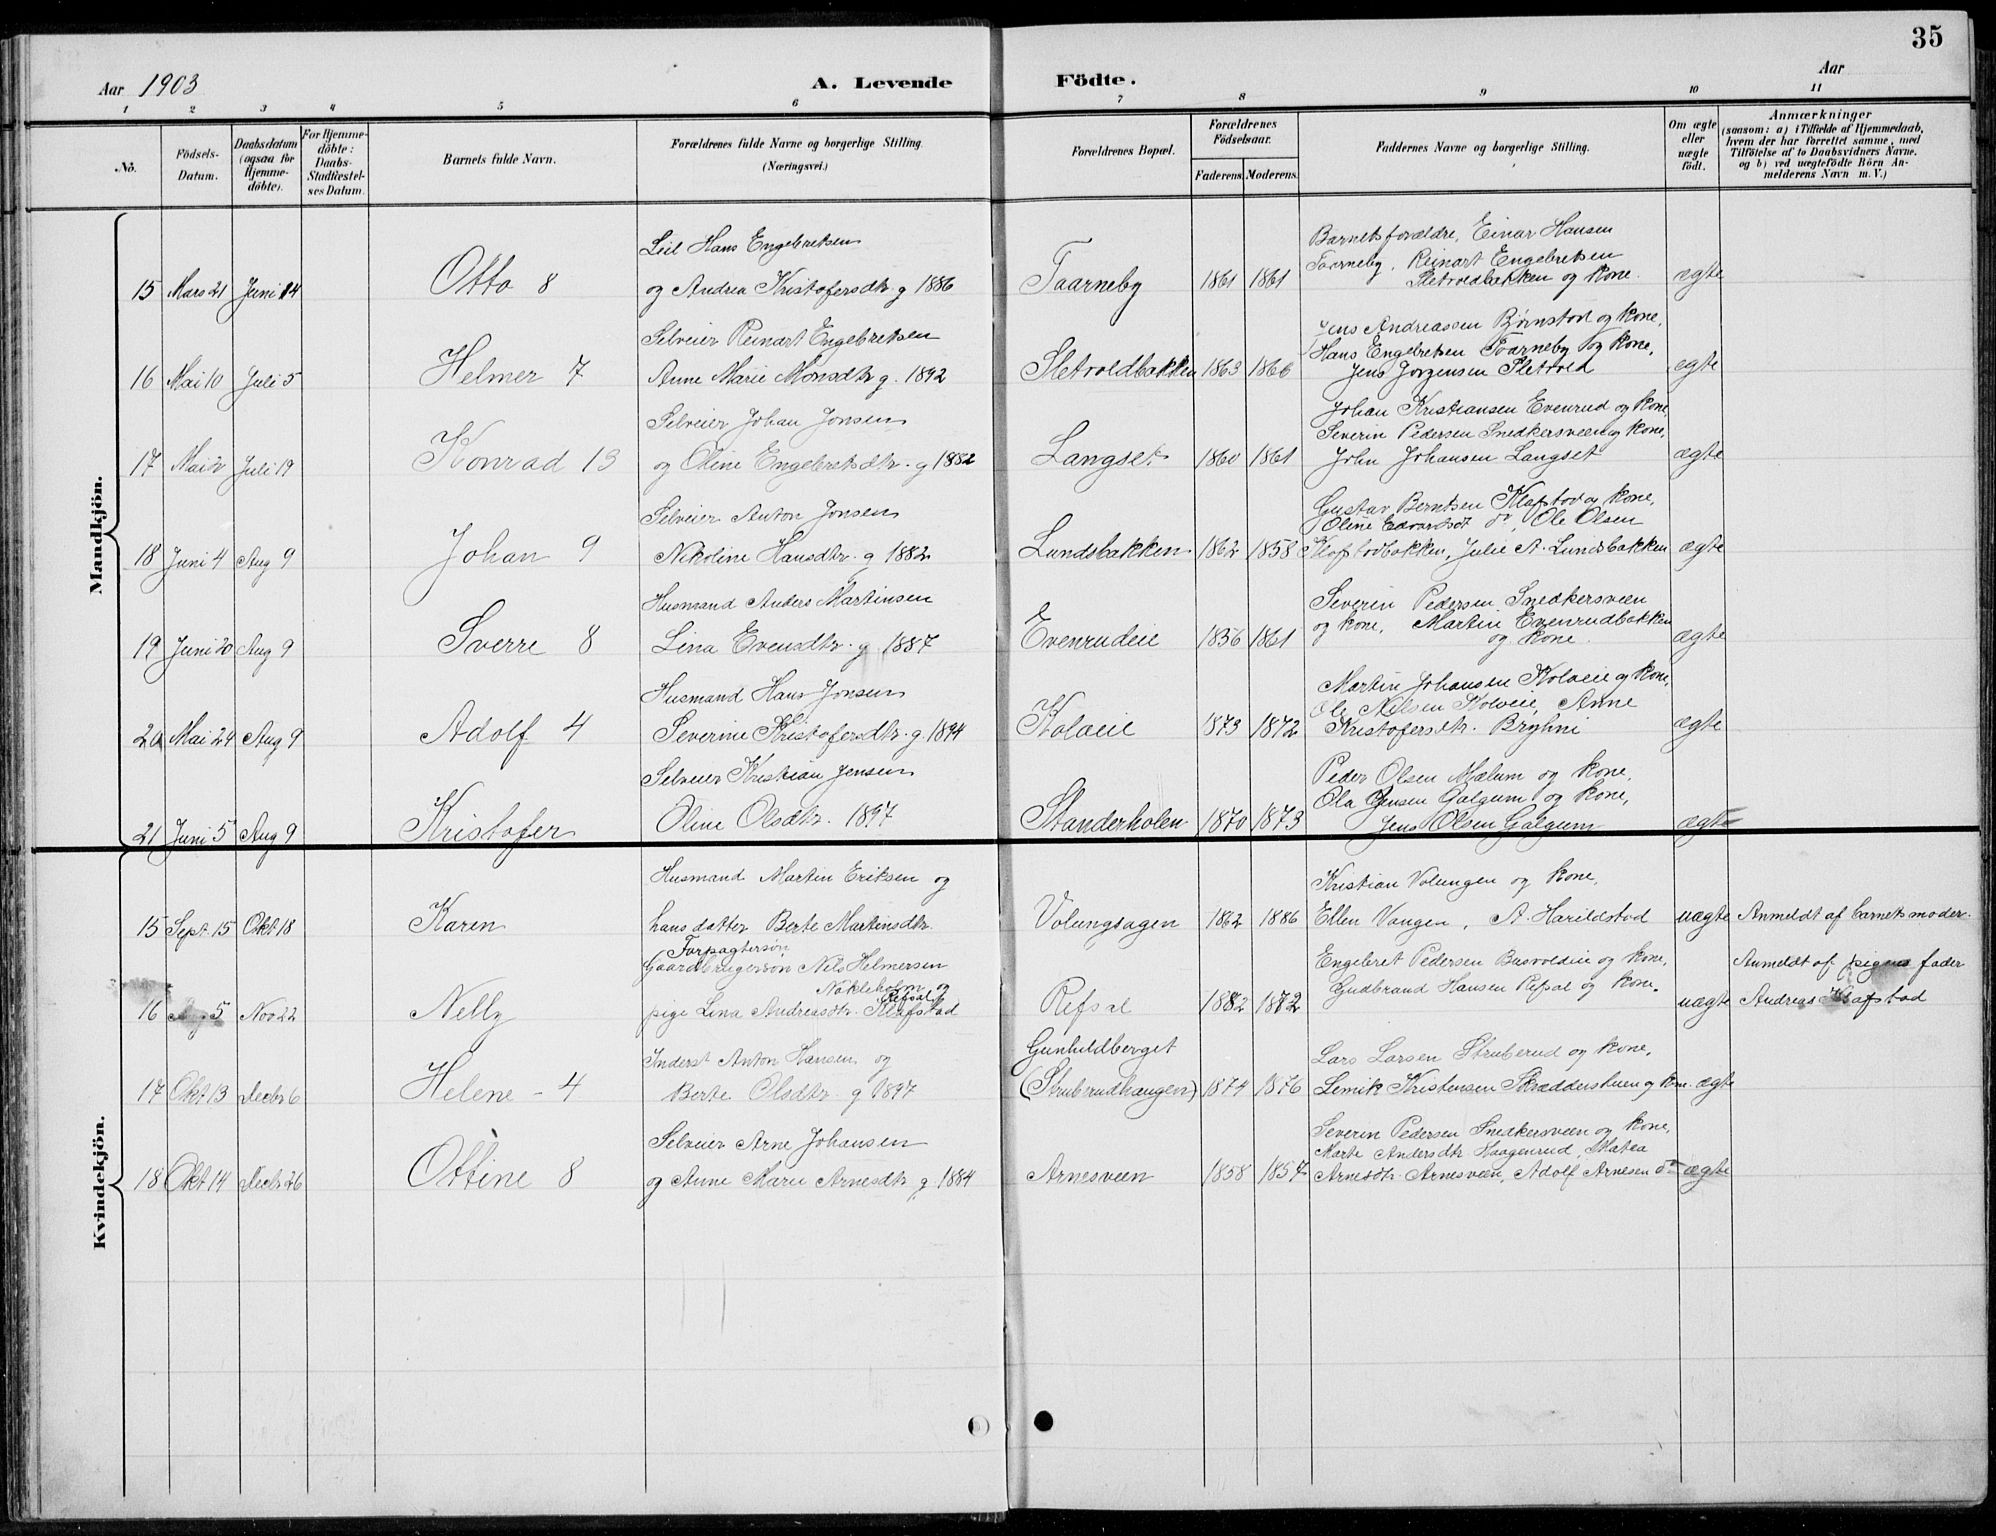 35
Aar 1903
A. Levende Födte.
Aar
1 2 3 4 5 6 7 8 9 10 11
No.
Födsels-Datum.
Daabsdatum (ogsaa för Hjemme-döbte).
For Hjemme-döbte: Daabs-Stadfestel-ses Datum.
Barnets fulde Navn.
Forældrenes fulde Navne og borgerlige Stilling.
(Næringsvei.)
Forældrenes Bopæl.
Forældrenes Födselsaar.
Faderens. Moderens.
Faddernes Navne og borgerlige Stilling.
Om ægte eller uægte födt.
Anmærkninger
(saasom: a) i Tilfælde af Hjemmedaab,
hvem der har forrettet samme, med
Tilföielse af to Daabsvidners Navne.
og b) ved uægtefödte Börn An-
melderens Navn m. V.)
Mandkjön.
Leil Hans Engebretsen
Barnets forældre, Einar Hansen
Taarneby, Reinart Engebretsen
15 Mars 21 Juni 14 Otto 8 og Andrea Kristofersdtr g 1886 Taarneby 1861 1861 Sletvoldbakken og kone. ægte
Selveier Reinart Engebretsen
Jens Andreassen Bjørnstod og kone,
Hans Engebretsen Taarneby og kone,
16 Mai 10 Juli 5 Helmer 7 Anne Marie Monsdtr g. 1892 Sletvoldbakken 1863 1866 Jens Jorgensen Sletvold ægte
Selveier Johan Jonsen
Johan Kristiansen Evenrud og kone,
Severin Pedersen Snedkersveen og kone,
17 Mai 2 Juli 19 Konrad 13 og Oline Engebretsdtr. g 1882 Langset 1860 1861 John Johansen Langset ægte
Selveier Anton Jonsen
Gustav Berntsen Klafstod og kone,
Oline Edvardsdt do, Ole Olsen
18 Juni 4 Aug 9 Johan 9 Nikoline Hansdtr. g 1882 Lundsbakken 1862 1858 Klofstodbakken, Julie A. Lundsbakken ægte
Husmand Anders Martinsen
Severin Pedersen Snedkersveen
og kone, Martin Evenrudbakken
19 Juni 20 Aug 9 Sverre 8 Lina Evensdtr. g. 1887 Evenrudeie 1856 1861 og kone. ægte
Husmand Hans Jonsen
Martin Johansen Kolveie og kone,
Ole Nilsen Kolveie, Anne
20 Mai 24 Aug 9 Adolf 4 Severine Kristofersdtr. g. 1894 Kolveie 1873 1872 Kristofersdtr. Bryhni ægte
Selveier Kristian Jensen
Peder Olsen Mælum og kone,
Ola Jensen Galgum og kone,
21 Juni 5 Aug 9 Kristofer Oline Olsdtr. 1897 Standerholen 1870 1873 Jens Olsen Galgum ægte
Kvindekjön.
Husmand Martin Eriksen og
Kristian Volungen og kone,
15 Sept. 15 Okt 18 Karen hans datter Berte Martinsdtr. Volungsagen 1862 1886 Ellen Vangen, A. Harildstad uægte Anmeldt af barnets moder.
Forpagtersøn
Gaardbrugersøn Nils Helmersen
Nakleholm og
Engebret Pedersen Busvoldeie og kone,
Anmeldt af pigens fader
Refsal
16 5 Nov 22 Nelly pige Lina Andreasdtr. Klafstad Refsal 1882 1872 Gudbrand Hansen Refsal og kone. uægte Andreas Klafstad
Inderst Anton Hansen og
Gunhildberget
Lars Larsen Struberud og kone,
17 Okt 13 Decbr 6 Helene - 4 Berte Olsdtr. g 1897 (Strubrudhaugen) 1874 1876 Lemik Kristensen Skræddersstuen og kone. ægte
Selveier Arne Johansen
Severin Pedersen Snedkersveen og kone,
Marte Andersdtr Haagenrud, Matea
18 Okt 14 Decbr 26 Ottine 8 og Anne Marie Arnesdtr g. 1884 Arnesveen 1858 1857 Arnesdtr Arnesveen, Adolf Arnesen do ægte